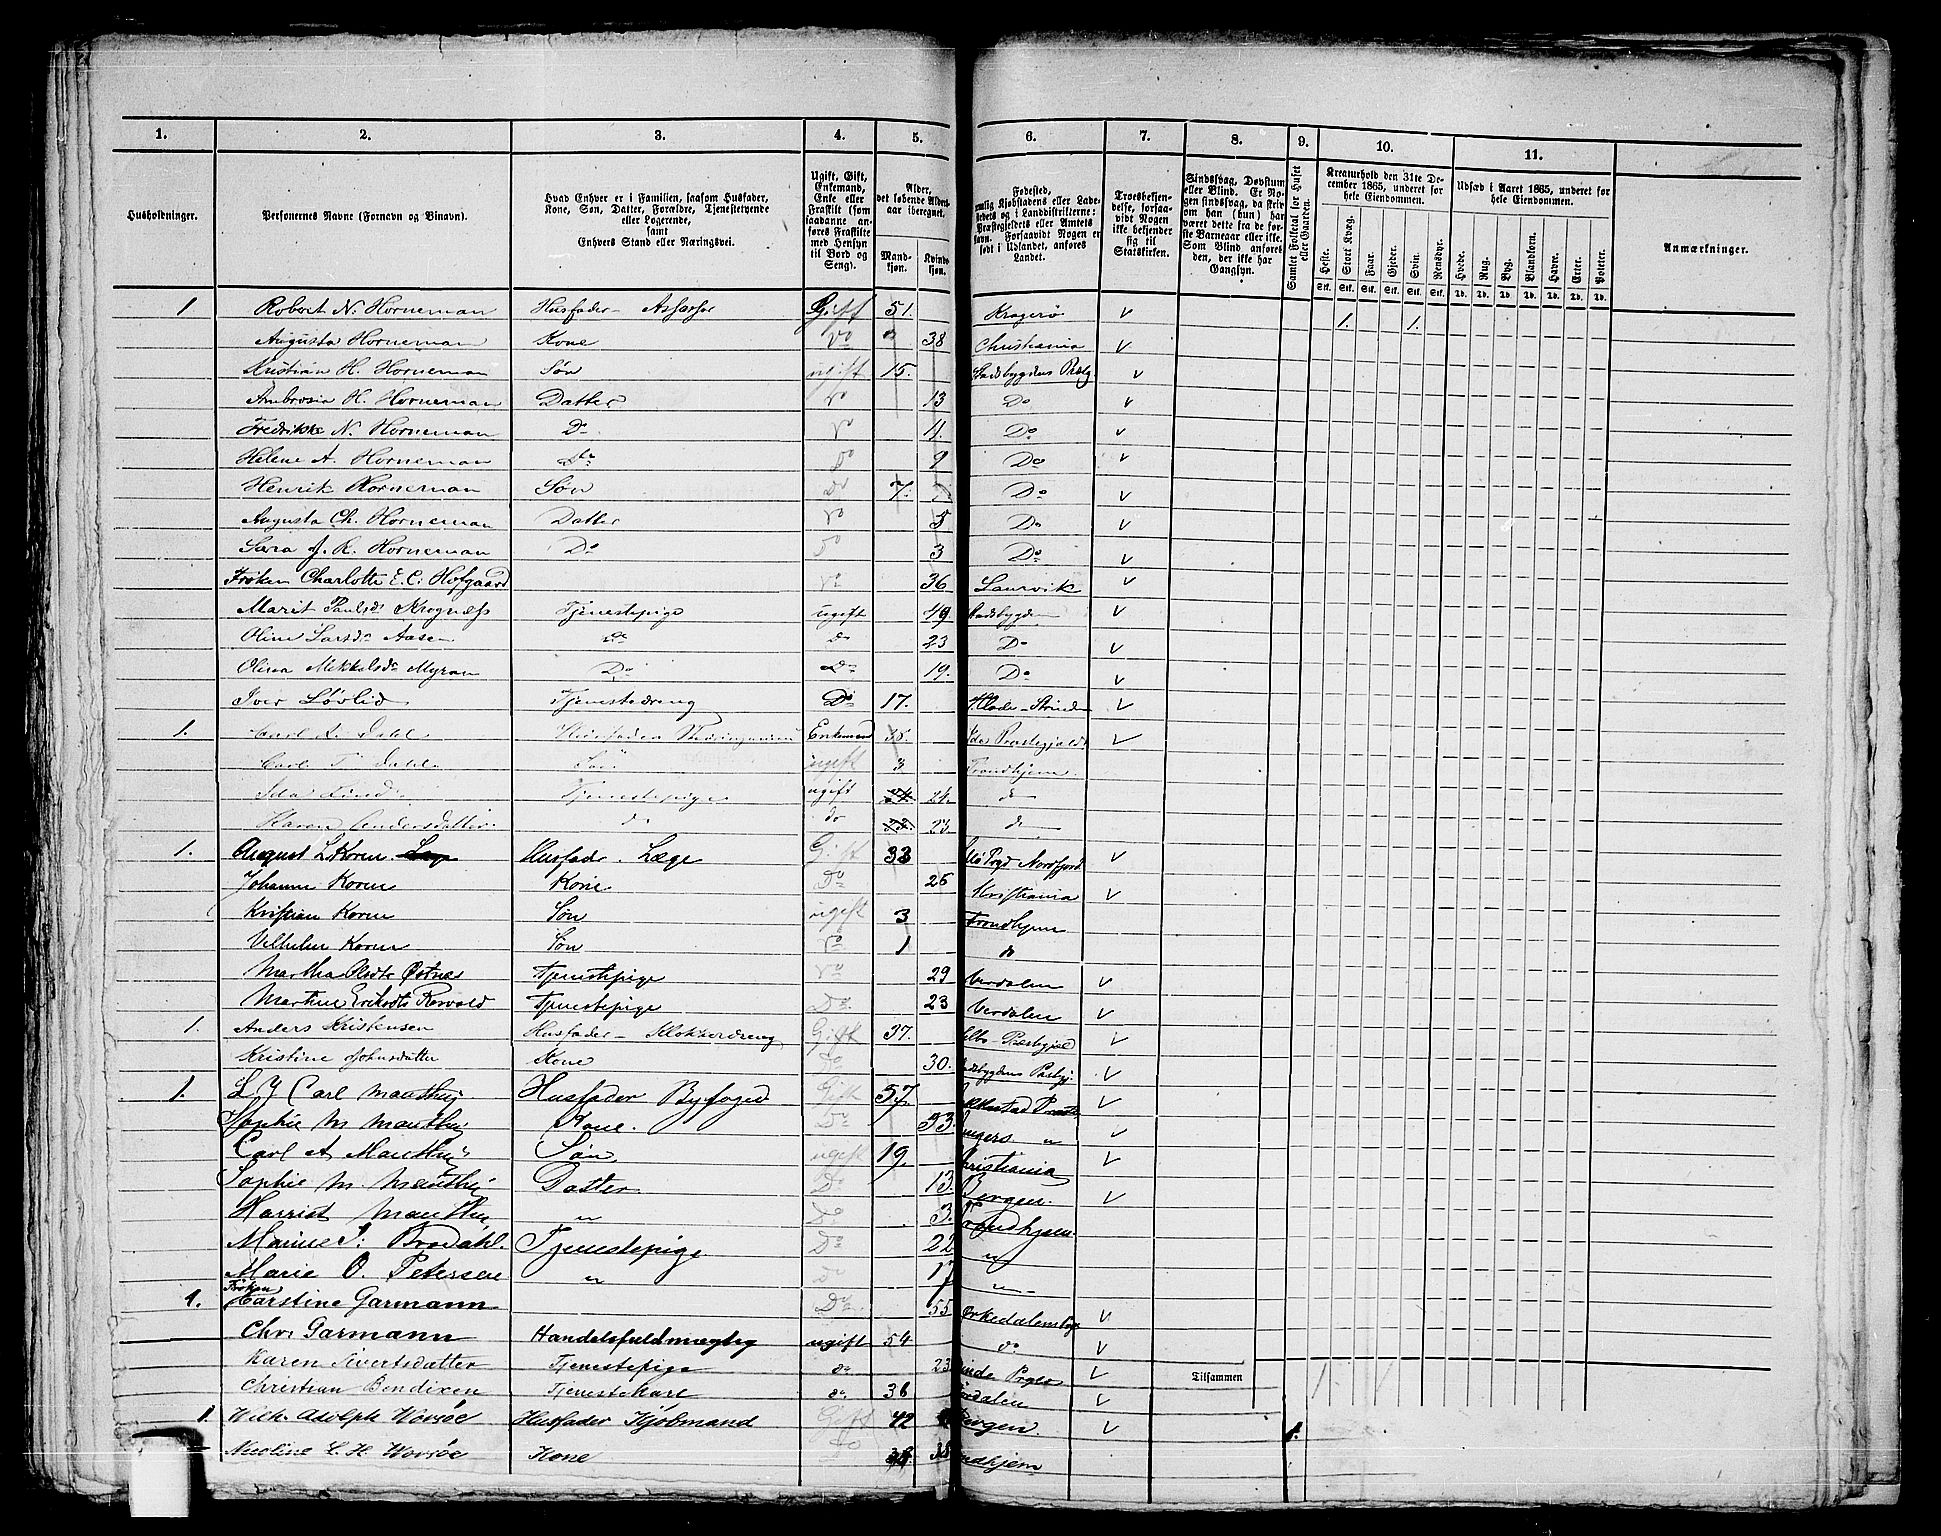 1. 2. 3. 4. 5. 6. 7. 8. 9. 10. 11.
Husholdninger.
Personernes Navne (Fornavn og Binavn).
Hvad Enhver er i Familien, saasom Husfader,
Kone, Søn, Datter, Forældre, Tjenestetyende
eller Logerende,
samt
Enhvers Stand eller Næringsvei.
Ugift, Gift,
Enkemand,
Enke eller
Fraskilt (som
saadanne an-
føres Fraskilte
med Hensyn
til Bord og
Seng).
Alder,
det løbende Alders-
aar iberegnet.
Mand-
kjøn.
Kvinde-
kjøn.
Fødested,
nemlig Kjøbstadens eller Lade-
stedets og i Landdistrikterne:
Præstegjeldets eller Amtets
Navn. Forsaavidt Nogen er
født i Udlandet, anføres
Landet.
Troesbekjen-
delse, forsaa-
vidt Nogen
ikke bekjender
sig til
Statskirken.
Sindssvag, Døvstum
eller Blind. Er No-
gen sindssvag, da skriv
om han (hun) har
været dette fra de før-
ste Barneaar eller ikke.
Som Blind anføres
den, der ikke har
Gangsyn.
Samlet Folketal for Huset
eller Gaarden.
Kreaturhold den 31te De-
cember 1865, underet for
hele Eiendommen.
Heste. Stort Kvæg. Faar. Gjeder. Svin. Rensdyr.
Stk. Stk. Stk. Stk. Stk. Stk.
Udsæd i Aaret 1865, underet for
hele Eiendommen.
Hvede. Rug. Byg. Blandkorn. Havre. Erter. Poteter.
Td. Td. Td. Td. Td. Td. Td.
Anmærkninger.
1 Robert N. Horneman Husfader - Assessor Gift 51. Kragerø v 1. 1.
Augusta Horneman Kone Do " 38 Christiania v
Kristian H. Horneman Søn ugift 15. Stadsbygdens Præstg. v
Ambrosia H. Horneman Datter Do 13 Do v
Fredrikke N. Horneman Do Do 11. Do v
Helene A. Horneman Do Do 9 Do v
Henrik Horneman Søn Do 7. Do v
Augusta Ch. Horneman Datter Do 5 Do v
Sara J. K. Horneman Do Do 3 Do v
Frøken Charlotte E. C. Hofgaard Do 36 Laurvik v
Marit Paulsdr Krognæss Tjenestepige ugift 49 Stadsbygden v
Oline Larsdr Aasen do do 23 Do v
Olina Mikkelsdr Myran Do Do 19. Do v
Iver Løvlid Tjenestedreng Do 17. Hlade - Strinden v
1. Carl Dahl Husfader Enkemand 35. Præstegjeld v
Carl T. Dahl Søn ugift 3 Trondhjem
Ida Lind Tjenestepige ugift 24. do
Karen Andersdatter do do 23. do
1. August L. Koren Husfader. Læge Gift 33 Nordfjord v
Johanne Koren Kone Do 26 Kristiania v
Kristian Koren Søn ugift 3 Trondhjem
Vilhelm Koren Søn Do 1 do
Martha Østnes Tjenestepige Do 29 Verdalen v
Martine Eriksdtr Tjenestepige Do 23 Verdalen v
1. Anders Kristensen Husfader - Klokkerdreng Gift 37. Selbo - Præstegjeld v
Kristine Johnsdatter Kone Do 30. Stadsbygdens Præstgj. v
1. L J Carl Manthey Husfader Byfoged Gift 57. v
Sophie M Manthey Kone. Do 53. v
Carl A Manthey Søn ugift 19. Christiania v
Sophie M. Manthey Datter. Do 13. Bergen. v
Harriet Manthey " Do 3. Trondhjem
Marine J: Brodahl. Tjenestepige Do 22 "
Marie O. Petersen " Do 17 "
1. Frøken Karstine Garmann Do 55 Ørkedalens v
Chr. Garmann Handelsfuldmægtig ugift 54 do v
Karen Sivertsdatter Tjenestepige do 23 v
Christian Bendixen Tjenestekarl do 36 v
Tilsammen
1. Wilh. Adolph Worsøe Husfader Kjøbmand Gift 42 Bergen. v 1.
Nicoline L. H. Worsøe Kone Do 38 Trondhjem